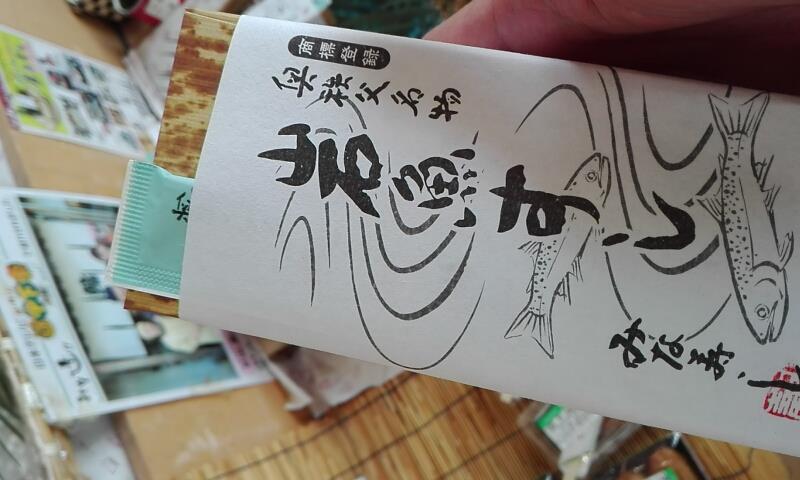 商標登録
奥秩父名物
岩魚すし
みな寿し